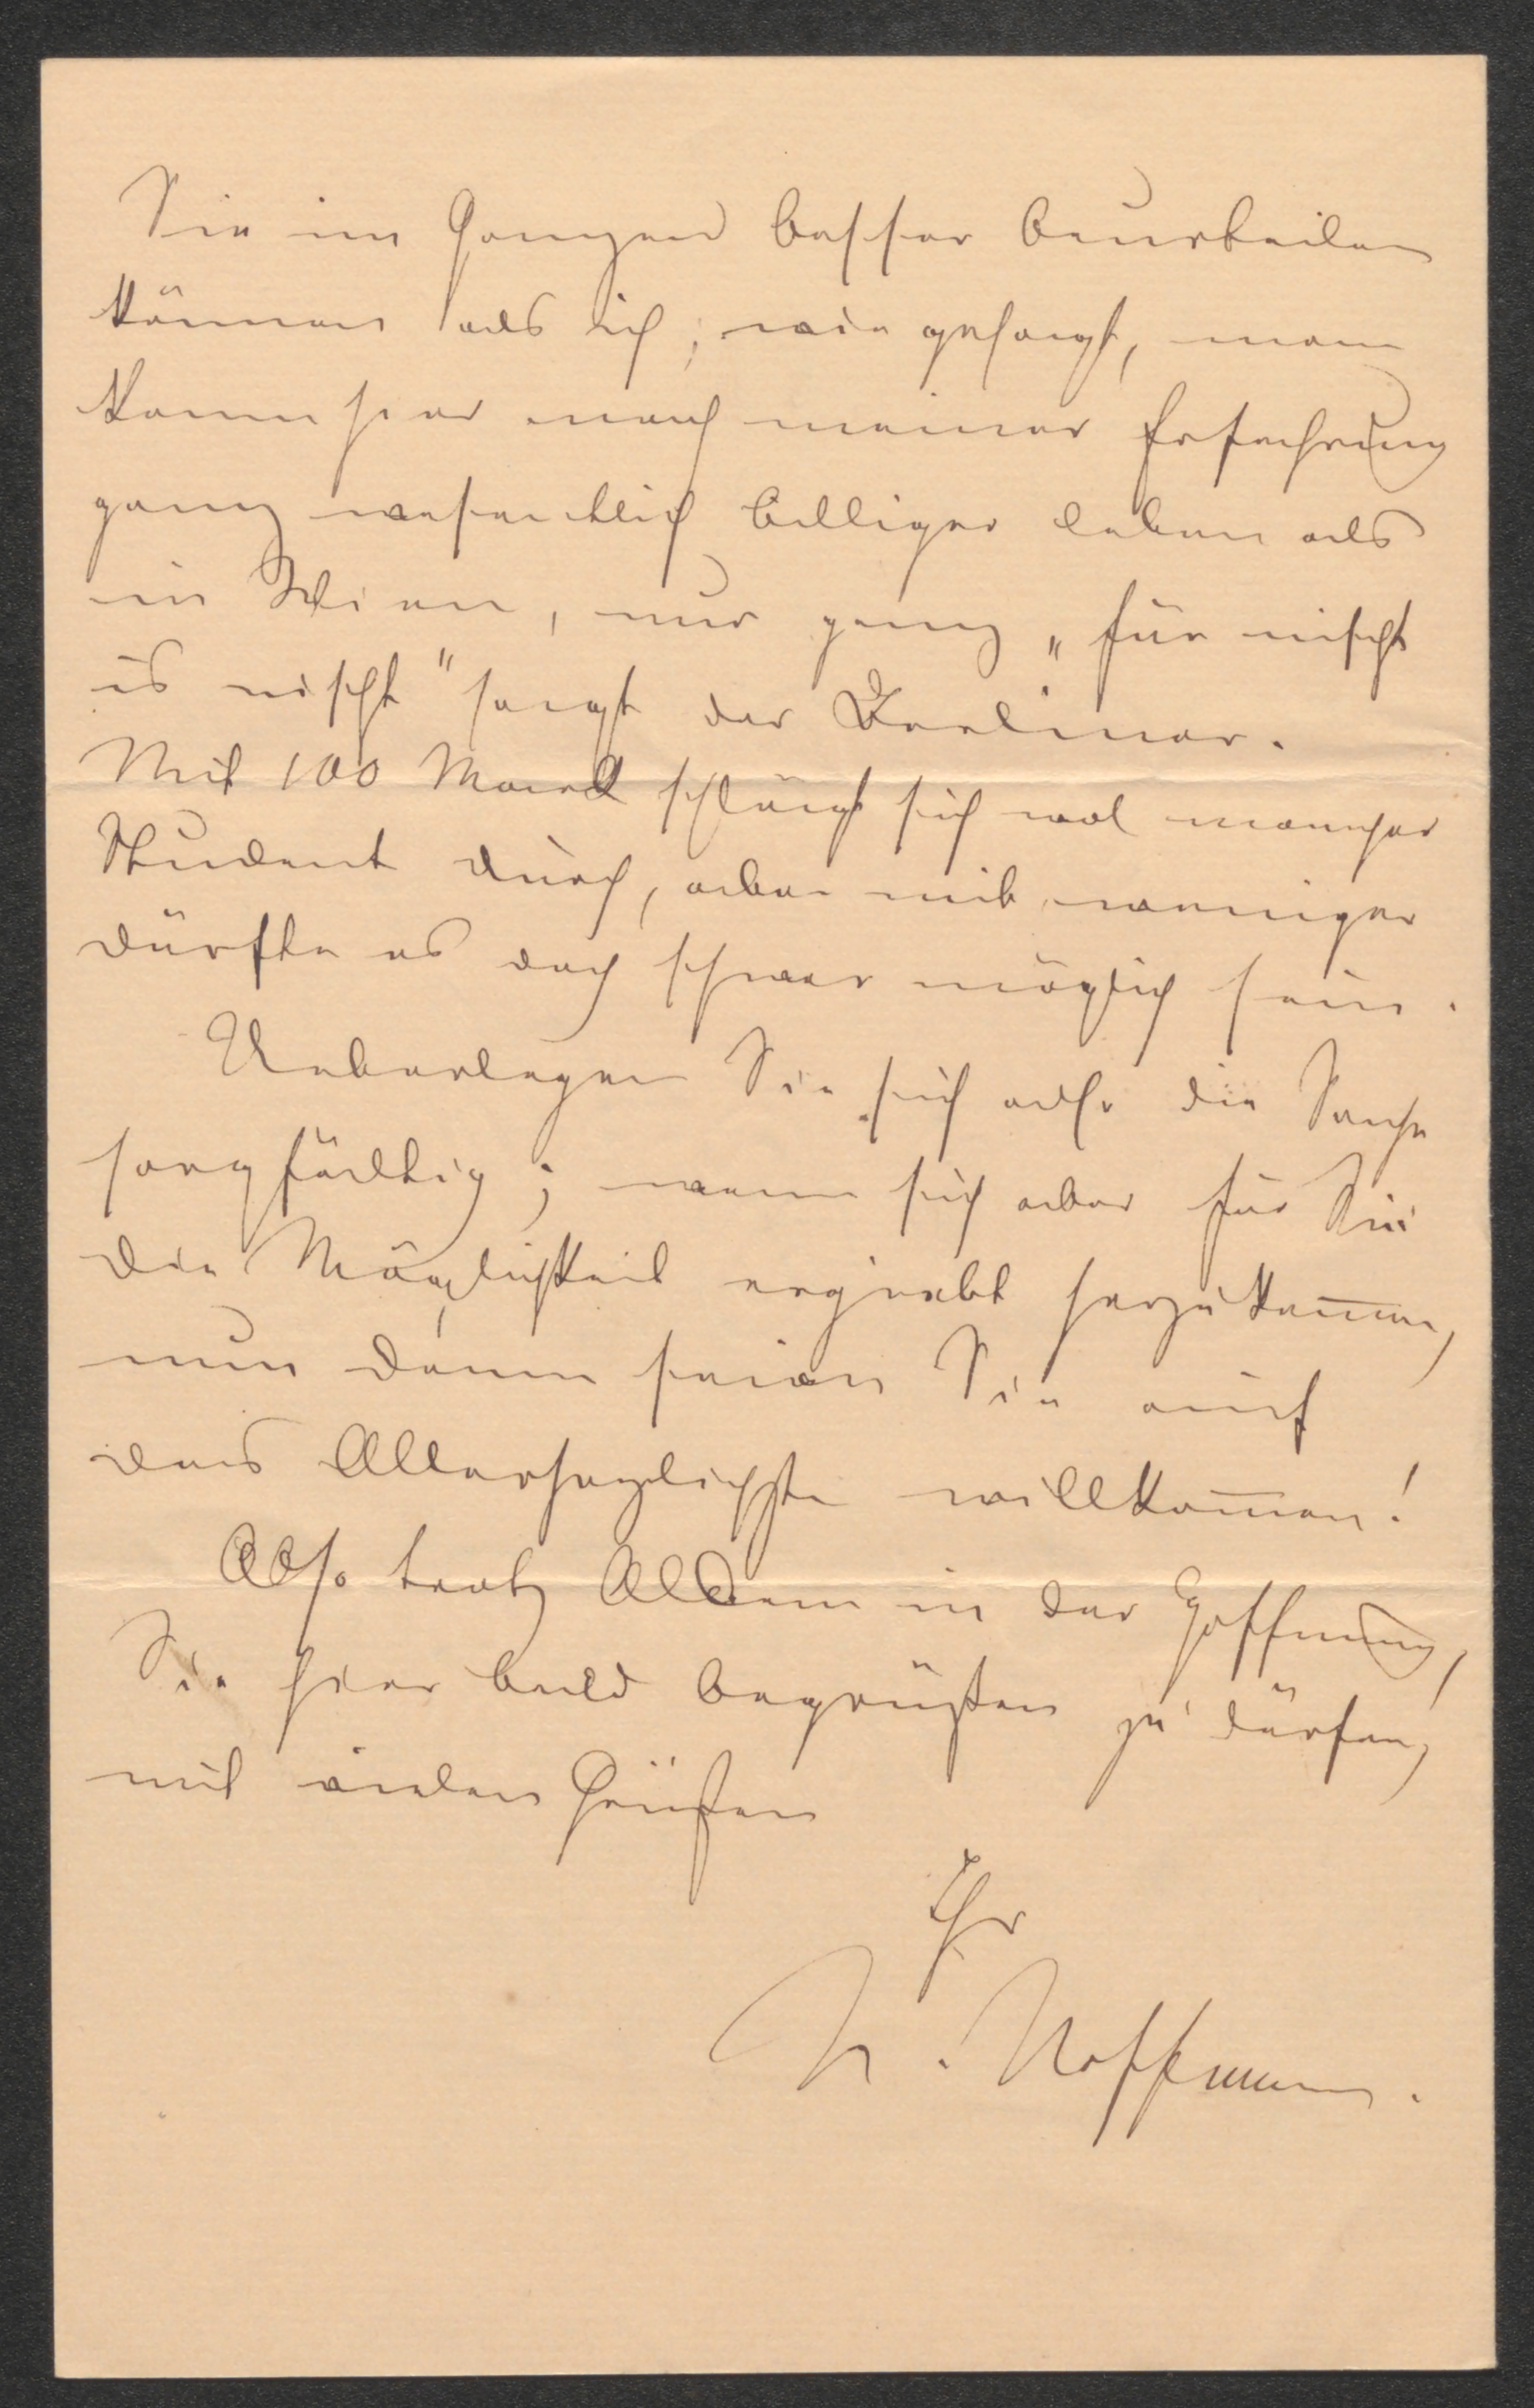 Sie im Ganzen besser beurteilen
können als ich; wie gesagt, man
kann hier nach meiner Erfahrung
ganz wesentlich billiger leben als
in Wien, nur ganz „für nischt
is nischt" sagt der Berliner.
Mit 100 Mark schlägt sich wol mancher
Student durch, aber mit weniger
dürfte es doch schwer möglich sein.
Ueberlegen Sie sich also die Sache
sorgfältig; wenn sich aber für Sie
die Möglichkeit ergiebt herzukom̅en,
nun dann seien Sie auf
das Allerherzlichste willkom̅en!
Also trotz Alldem in der Hoffnung,
Sie hier bald begrüßen zu dürfen,
mit vielen Grüßen
Ihr
Hoffmann.